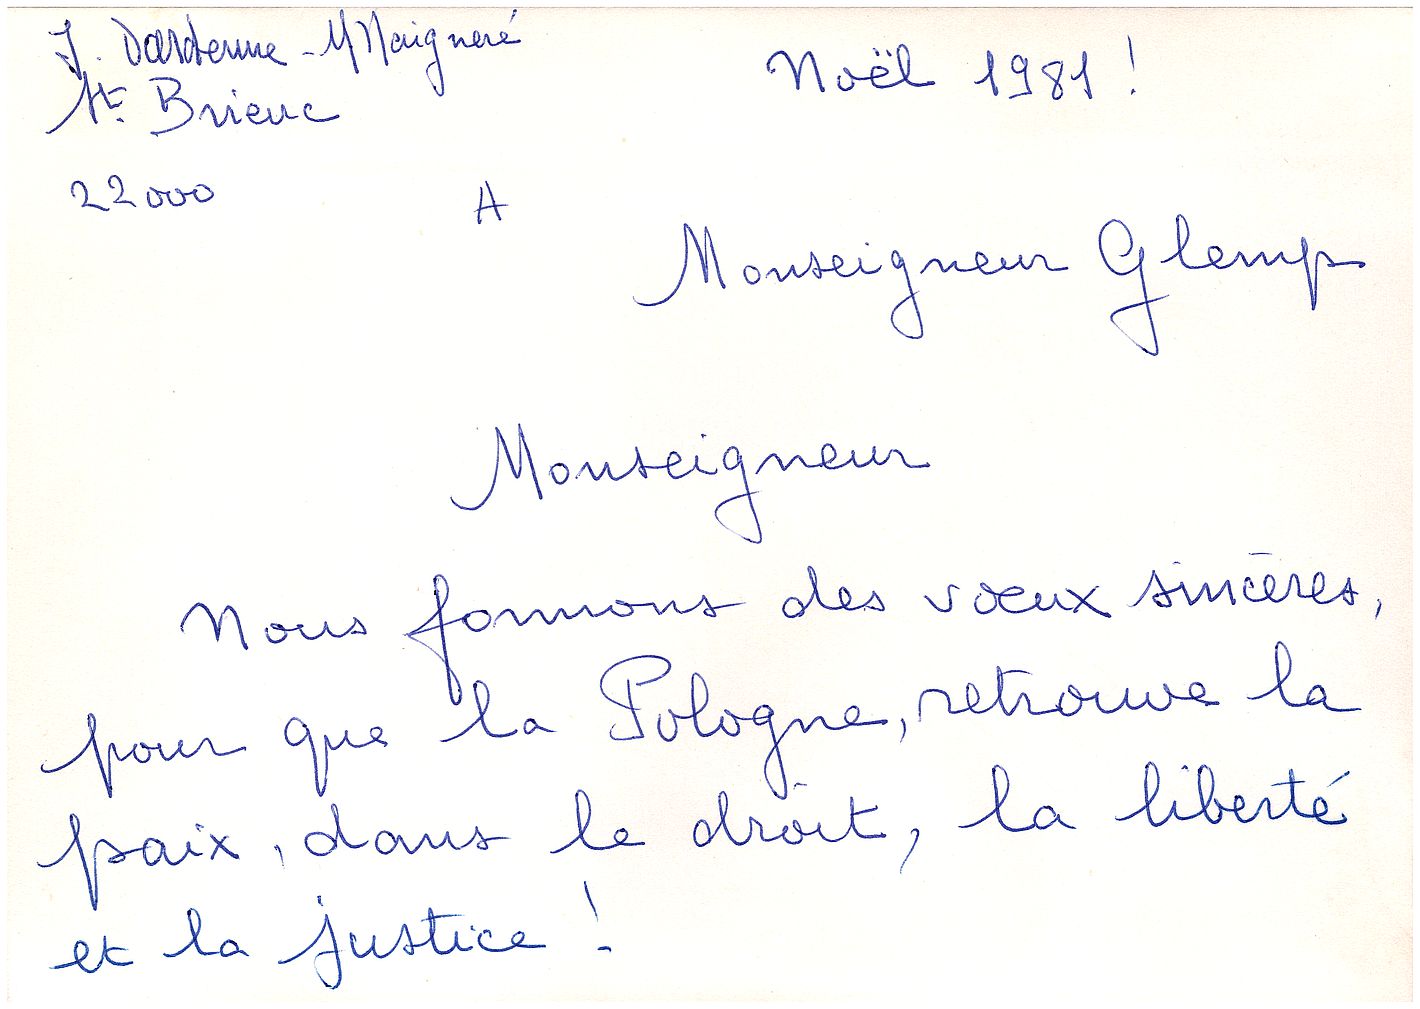 J. Dardenne - M Maigneré
St. Brieuc
Noël 1981 !
22000
A
Monseigneur Glemp
Monseigneur
Nous formons des vœux sincères,
pour que la Pologne, retrouve la
paix, dans le droit, la liberté
et la justice !